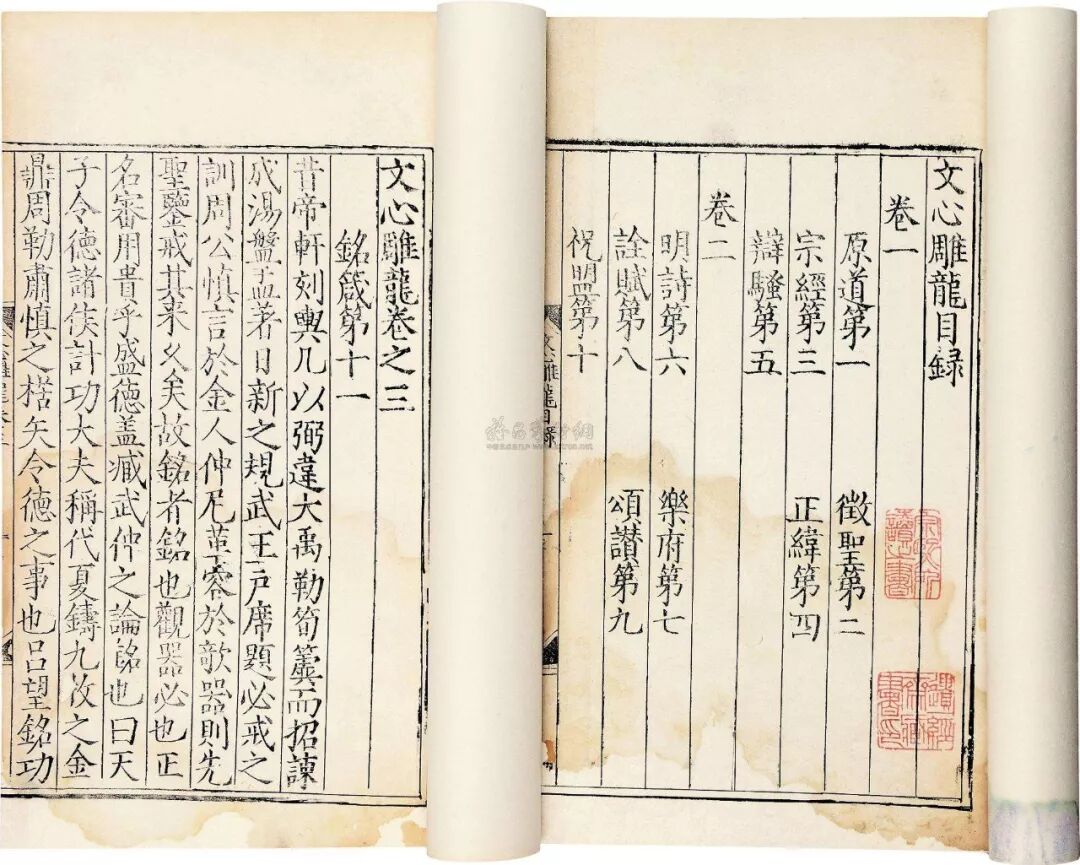 文心雕龍目録
卷一
原道第一 徵聖第二
宗經第三 正緯第四
辯騷第五
卷二
明詩第六 樂府第七
詮賦第八 頌讃第九
祝盟第十
文心雕龍目録
文心雕龍卷之三
銘箴第十一
昔帝軒刻輿几以弼違大禹勒筍簴而招諫
成湯盤盂著日新之規武王戶席題必戒之
訓周公慎言於金人仲尼革容於欹器則先
聖鑒戒其来久矣故銘者銘也觀器必也正
名審用貴乎盛德盖臧武仲之論銘也曰天
子令德諸侯計功大夫稱代夏鑄九牧之金
鼎周勒肅慎之楛矢令德之事也吕望銘功